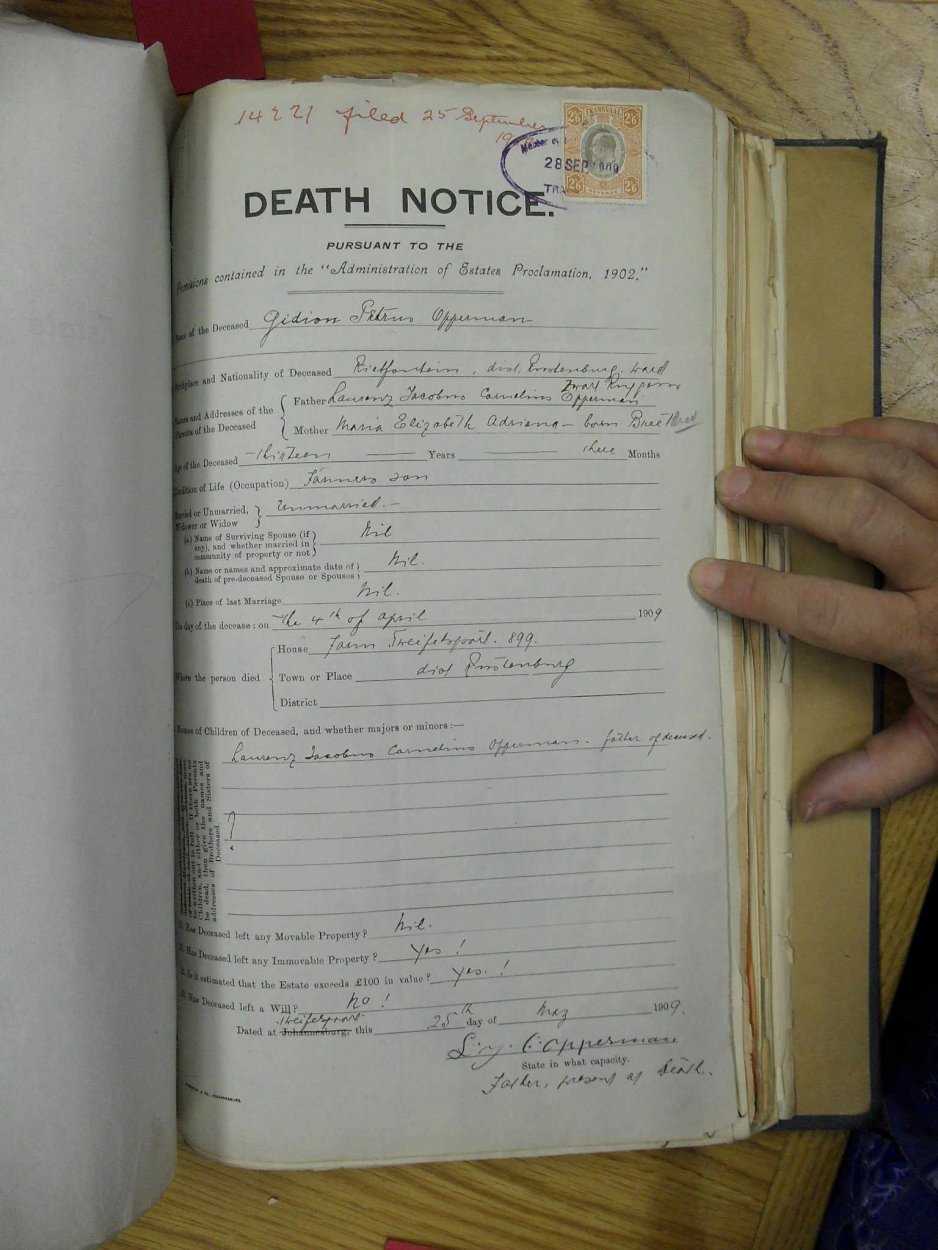 14221 filed 25 September
TRANSVAAL
2/6 2/6
28 SEP. 1909
2/6 2/6
DEATH NOTICE.
PURSUANT TO THE
Provisions contained in the "Administration of Estates Proclamation, 1902."
Name of the Deceased Gidion Petrus Opperman
Birthplace and Nationality of Deceased Rietfontein, dist. Rustenburg. ward
Zwart Ruggens
Names and Addresses of the Parents of the Deceased { Father Laurenz Jacobus Cornelius Opperman
Mother Maria Elizabeth Adriana - born Breet
Age of the Deceased thirteen Years three Months
Condition of Life (Occupation) Farmers son
Married or Unmarried, Widower or Widow } Unmarried.-
(a.) Name of Surviving Spouse (if any), and whether married in community of property or not } Nil
(b.) Name or names and approximate date of death of pre-deceased Spouse or Spouses } Nil.
(c.) Place of last Marriage Nil.
The day of the decease: on the 4th of April 1909
Where the person died { House Farm 899.
Town or Place dist Rustenburg
District
Names of Children of Deceased, and whether majors or minors:—
Laurenz Jacobus Cornelius Opperman. father of deceased.
be written out in full. If there are no
Children, and either or both Parents
be dead, then give the names and
addresses of Brothers and Sisters of
Deceased.
Has Deceased left any Movable Property? Nil.
Has Deceased left any Immovable Property? Yes!
Is it estimated that the Estate exceeds £100 in value? Yes.!
Has Deceased left a Will? No!
Dated at Johannesburg, this 25th day of May 1909.
L.J.C. Opperman
State in what capacity.
Father, present at Death.